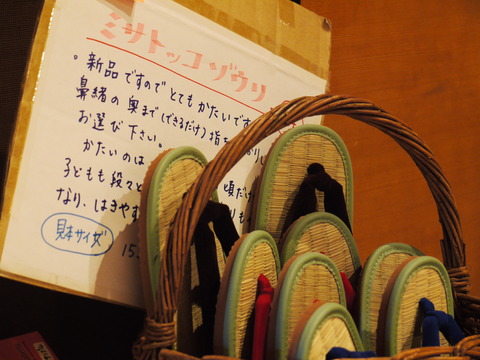 ミサトッコゾウリ
。新品ですのでとてもかたいです
鼻緒の奥まで(できるだけ)指を
お選び下さい。
かたいのは 頃だけ
子どもも段々と
なり、はきやす
見本サイズ 15.